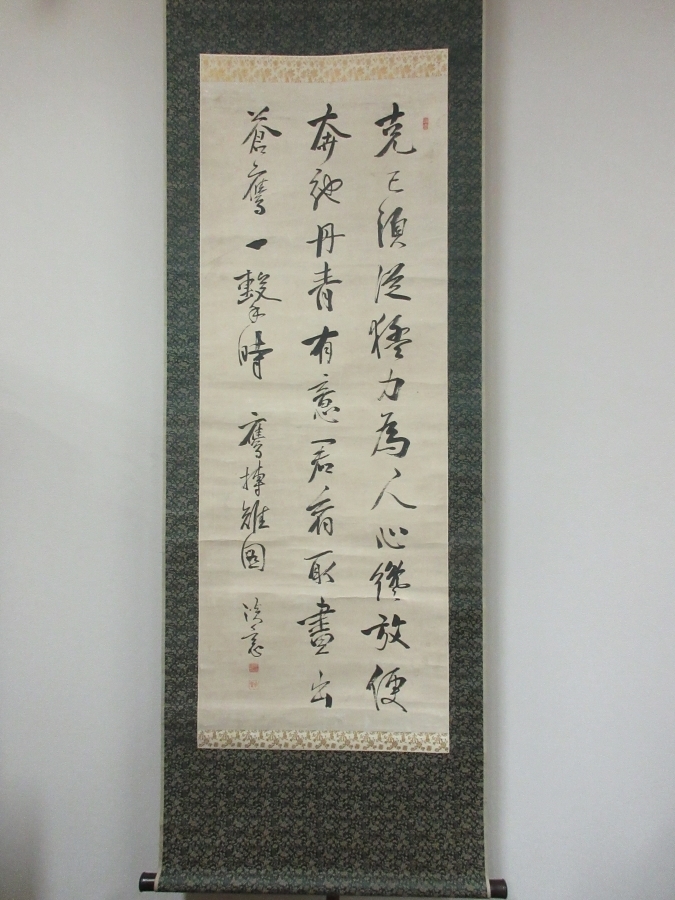 克己須從猛力為人心纔放便
奔馳丹青有意君看取畫出
蒼鷹一擊時 鷹搏雉図